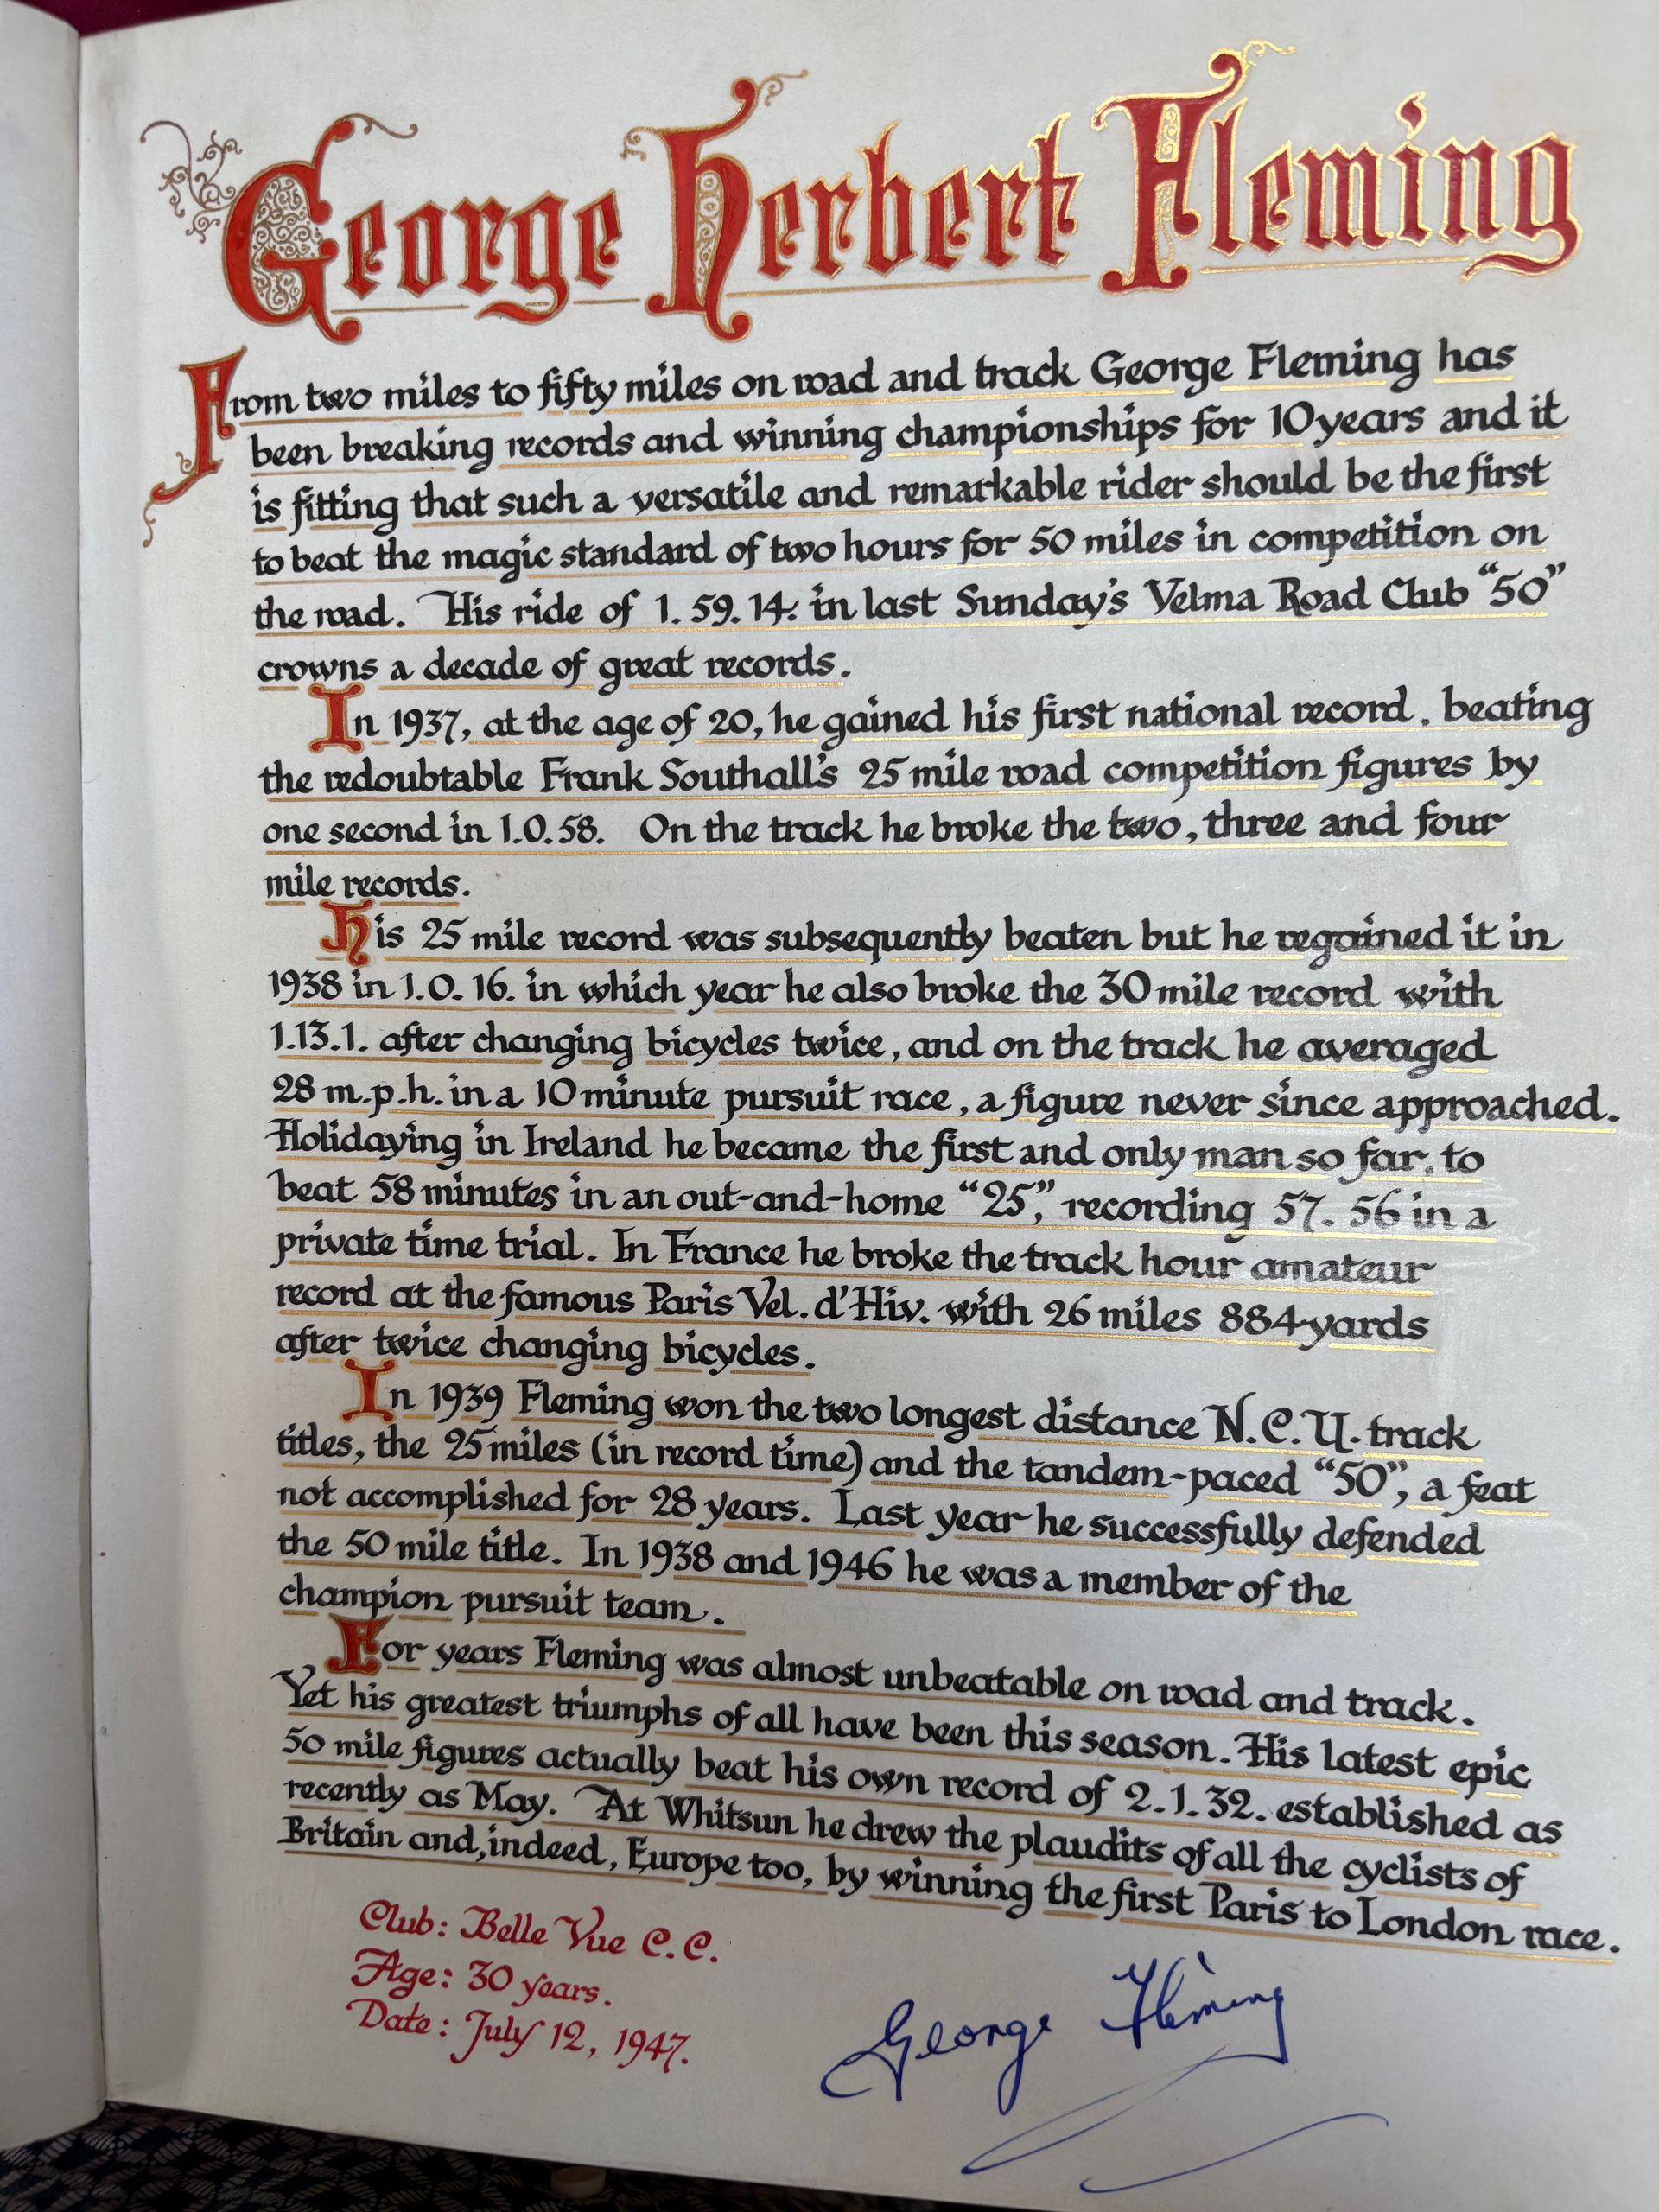 George Herbert Fleming
From two miles to fifty miles on road and track George Fleming has
been breaking records and winning championships for 10 years and it
is fitting that such a versatile and remarkable rider should be the first
to beat the magic standard of two hours for 50 miles in competition on
the road. His ride of 1.59.14. in last Sunday's Velma Road Club "50"
crowns a decade of great records.
In 1937, at the age of 20, he gained his first national record, beating
the redoubtable Frank Southall's 25 mile road competition figures by
one second in 1.0.58. On the track he broke the two, three and four
mile records.
His 25 mile record was subsequently beaten but he regained it in
1938 in 1.0.16. in which year he also broke the 30 mile record with
1.13.1. after changing bicycles twice, and on the track he averaged
28 m.p.h. in a 10 minute pursuit race, a figure never since approached.
Holidaying in Ireland he became the first and only man so far, to
beat 58 minutes in an out-and-home "25", recording 57.56 in a
private time trial. In France he broke the track hour amateur
record at the famous Paris Vel. d'Hiv. with 26 miles 884 yards
after twice changing bicycles.
In 1939 Fleming won the two longest distance N.C.U. track
titles, the 25 miles (in record time) and the tandem-paced "50", a feat
not accomplished for 28 years. Last year he successfully defended
the 50 mile title. In 1938 and 1946 he was a member of the
champion pursuit team.
For years Fleming was almost unbeatable on road and track.
Yet his greatest triumphs of all have been this season. His latest epic
50 mile figures actually beat his own record of 2.1.32. established as
recently as May. At Whitsun he drew the plaudits of all the cyclists of
Britain and, indeed, Europe too, by winning the first Paris to London race.
Club: Belle Vue C.C.
Age: 30 years.
Date: July 12, 1947.
George Fleming